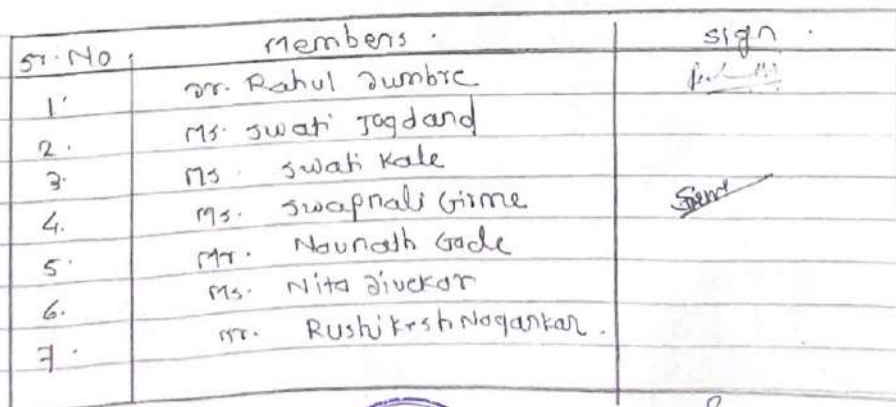 Sr. No. Members. sign.
1. Dr. Rahul Dumbre
2. Ms. Swati Jagdand
3. Ms. Swati Kale
4. Ms. Swapnali Girme
5. Mr. Navnath Gade
6. Ms. Nita Divekar
7. Mr. Rushikesh Nagarkar.